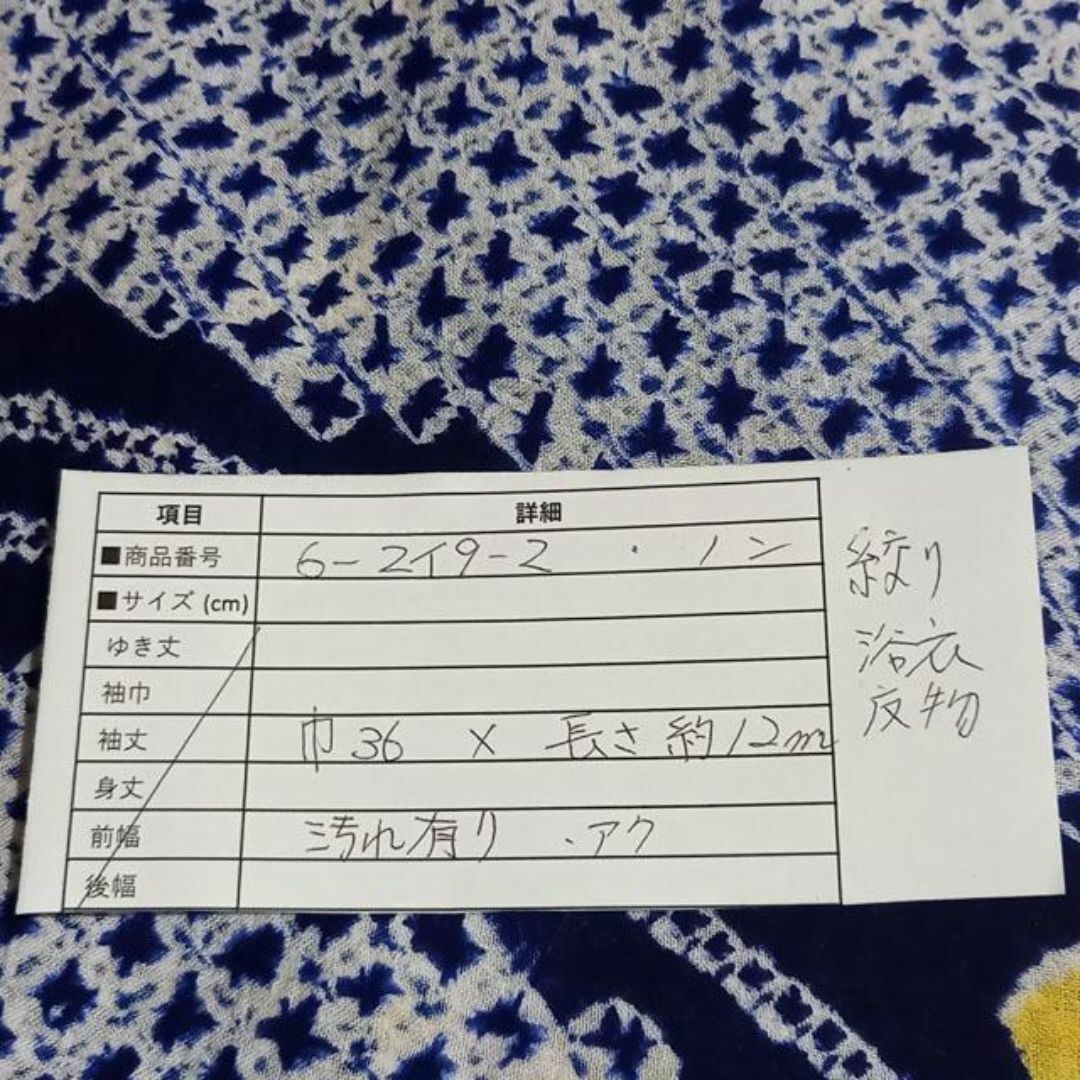 項目 詳細
■商品番号 6-2イ9-2 ・ ノン
■サイズ (cm)
ゆき丈
袖巾
袖丈 巾36 × 長さ約12m
身丈
前幅 汚れ有り ・アク
後幅
絞り
浴衣
反物